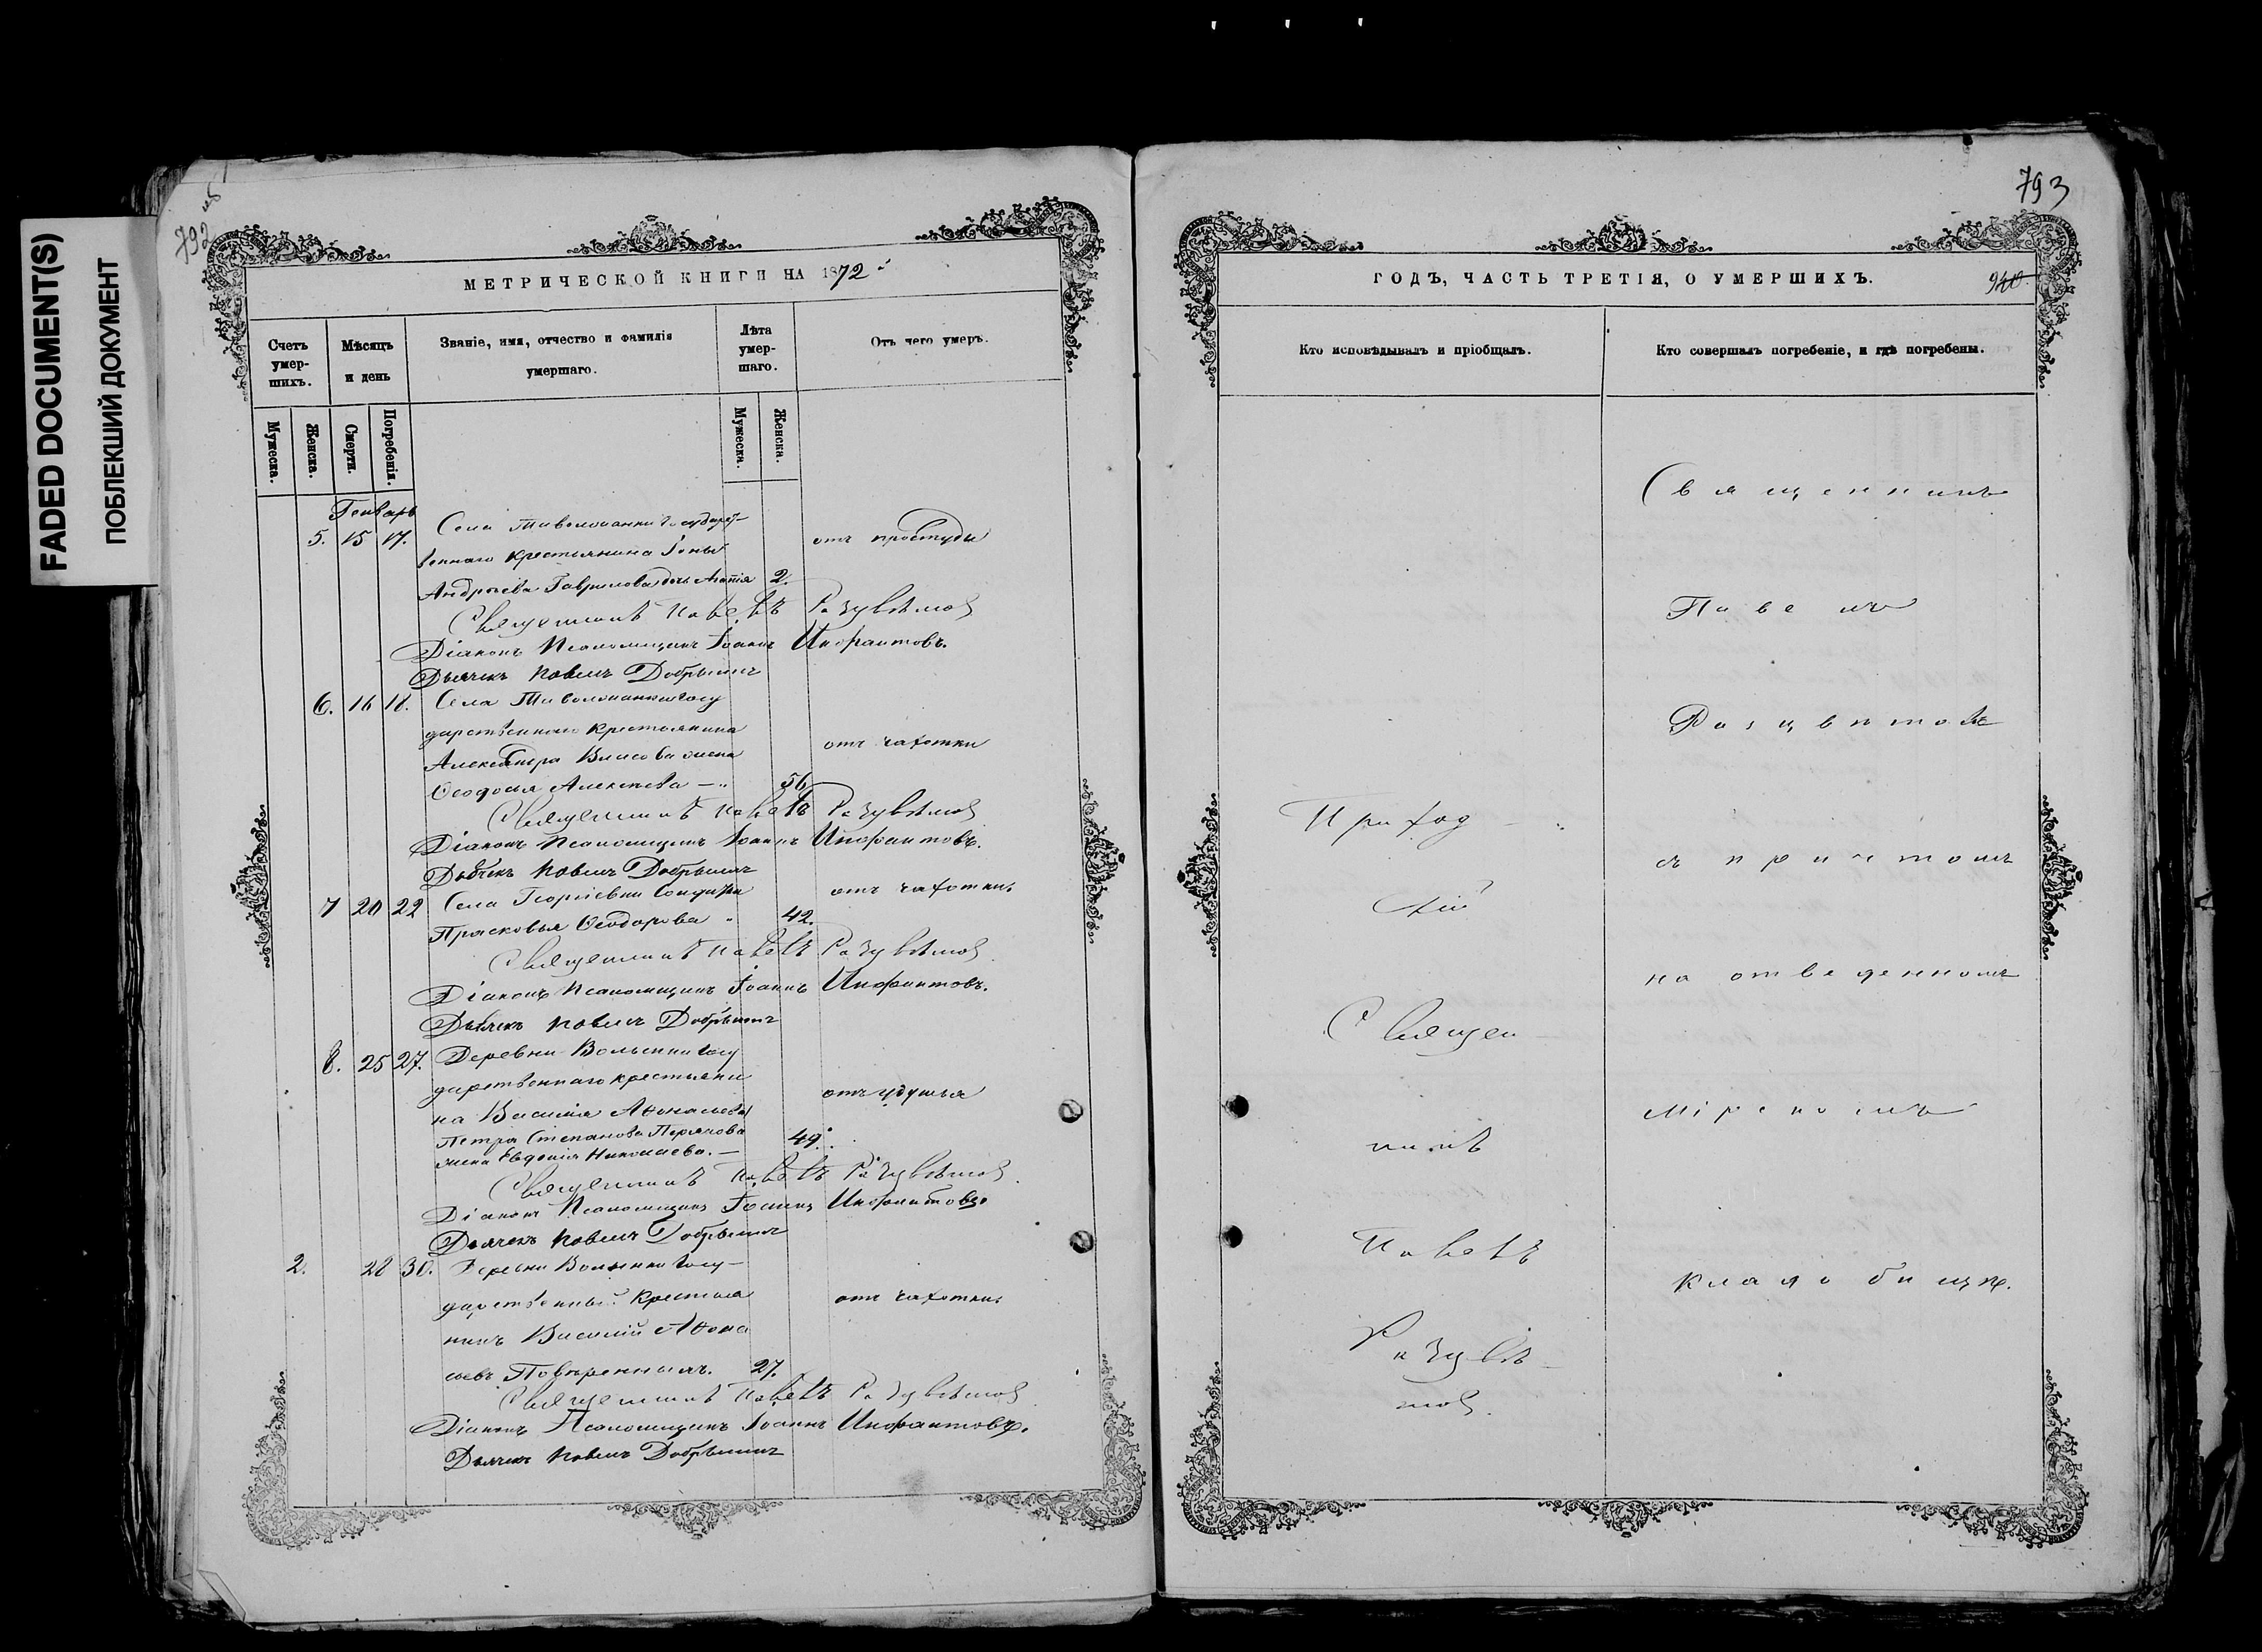 FADED DOCUMENT(S)
ПОБЛЕКШИЙ ДОКУМЕНТ
792 об
МЕТРИЧЕСКОЙ КНИГИ НА 1872 й
Счетъ умер-шихъ.
Мѣсяцъ и день
Званіе, имя, отчество и фамилія умершаго.
Лѣта умер-шаго.
Отъ чего умеръ.
Мужеска.
Женска.
Смерти.
Погребенія.
Мужеска.
Женска.
Генварь
5. 15 17. Села государст-
веннаго крестьянина Іоны
Андрѣева Гаврилова дочь 2.
отъ простуды
Священникъ Павелъ Разцвѣтов
Діаконъ Псаломщикъ Іоаннъ Инфантовъ.
Дьячекъ Павелъ Добрынинъ
6. 16 18. Села госу
дарственнаго крестьянина
Александра Власова жена
Ѳеодосія Алексѣева —„ 56
отъ чахотки
Священникъ Павелъ Разцвѣтов
Діаконъ Псаломщикъ Іоаннъ Инфантовъ.
Дьячекъ Павелъ Добрынинъ
7 20 22 Села Георгіевки
Прасковья Ѳеодорова „ 42.
отъ чахотки.
Священникъ Павелъ Разцвѣтов
Діаконъ Псаломщикъ Іоаннъ Инфантовъ.
Дьячекъ Павелъ Добрынинъ
8. 25 27. Деревни госу
дарственнаго крестьяни
на Василія
Петра Степанова
жена Евдокія Николаева. — 49.
отъ удушья
Священникъ Павелъ Разцвѣтов
Діаконъ Псаломщикъ Іоаннъ Инфантовъ.
Дьячекъ Павелъ Добрынинъ
2. 28 30. Деревни госу—
дарственный крестья
нинъ Василій Аѳона
сьевъ 27.
отъ чахотки.
Священникъ Павелъ Разцвѣтов
Діаконъ Псаломщикъ Іоаннъ Инфантовъ.
Дьячекъ Павелъ Добрынинъ
793
ГОДЪ, ЧАСТЬ ТРЕТІЯ, О УМЕРШИХЪ.
940.
Кто исповѣдывалъ и пріобщалъ.
Кто совершалъ погребеніе, и гдѣ погребены.
Приход—
скій
Священ—
никъ
Павелъ
Разцвѣ—
тов.
Священникъ
Павелъ
Разцвѣтов
съ причтомъ
на отведенномъ
мірскомъ
кладбищѣ.